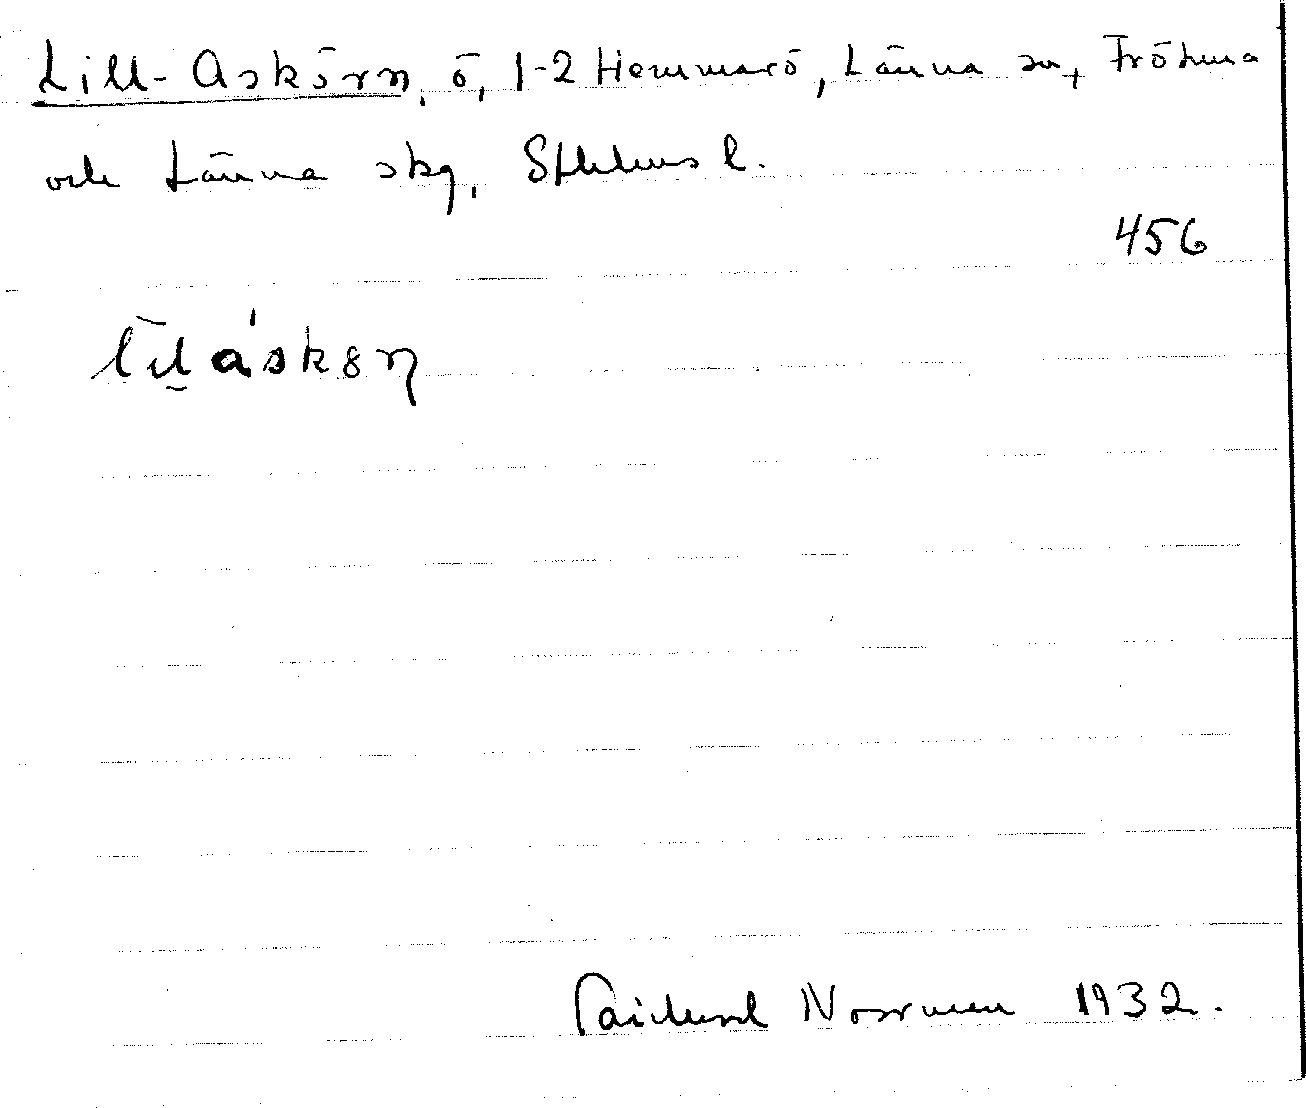 Lill-Askörn, ö, 1-2 Hemmarö, Länna sn, Frötuna
och Länna skg, Sthlms l.
456
Norrman 1932.